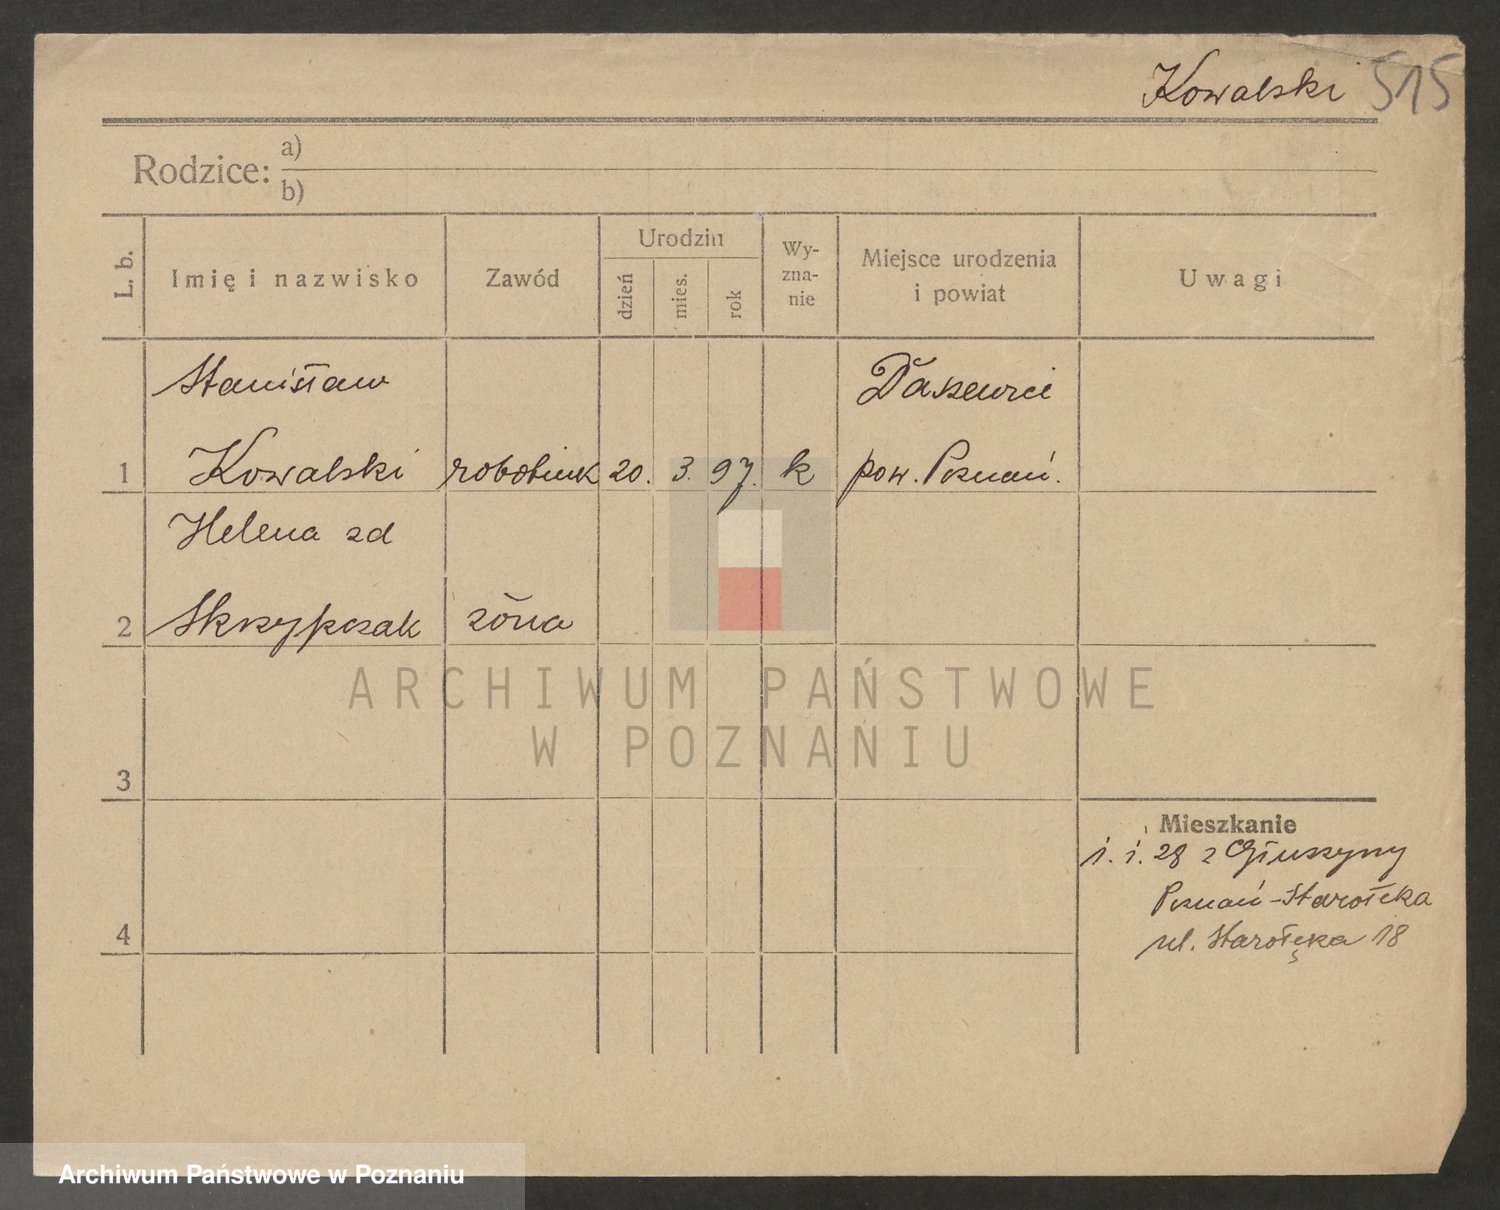 Kowalski 515
Rodzice: a)
b)
L. b.
Imię i nazwisko
Zawód
Urodzin
dzień
mies.
rok
Wy-
zna-
nie
Miejsce urodzenia
i powiat
Uwagi
Stanisław
1 Kowalski robotnik 20. 3. 97. k pow. Poznań.
Helena zd
2 Skrzypczak żona
ARCHIWUM PAŃSTWOWE
W POZNANIU
3
Mieszkanie
1. 1. 28 z Głuszyny
Poznań-Starołęka
4
ul. Starołęka 18
Archiwum Państwowe w Poznaniu